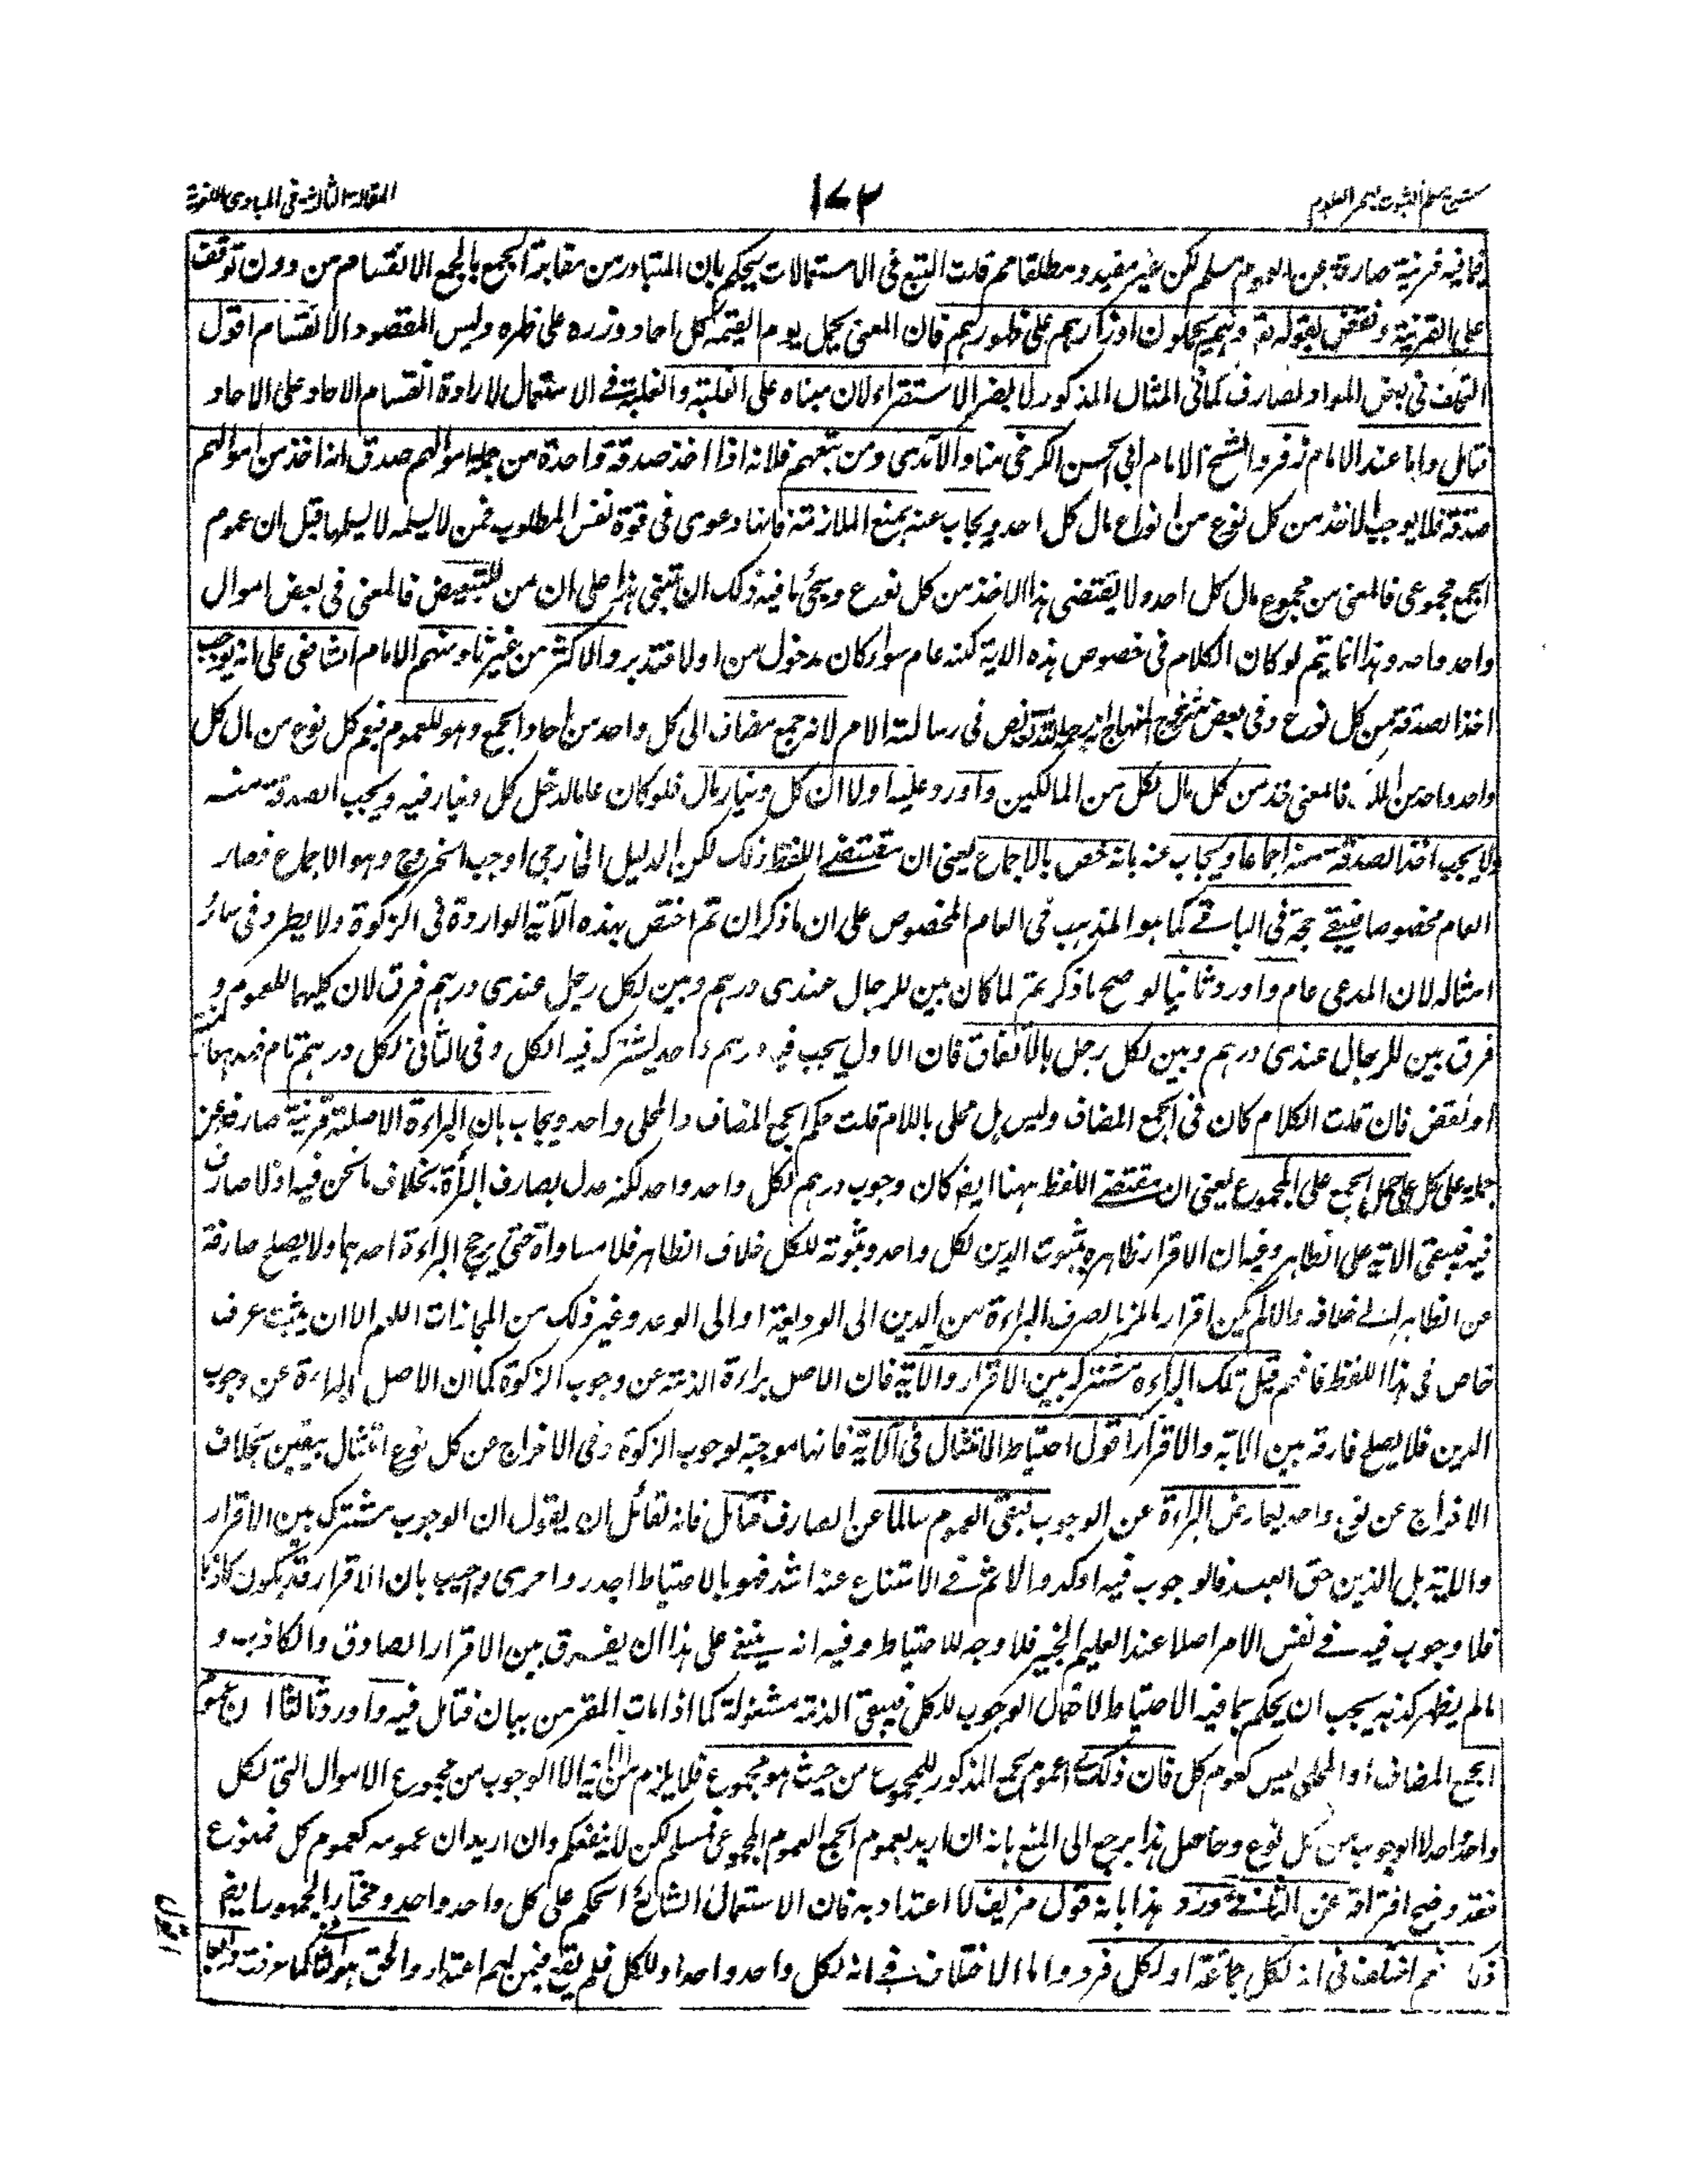 شرح مسلم الثبوت لبحر العلوم ١٧٢ المقالة الثالثة فى المبادى اللغوية
فيما فيه قرينة صارفة عن العموم مسلم لكن غير مفيد و مطلقا مم قلت التتبع فى الاستعمالات يحكم بان المتبادر من مقابلة الجمع بالجمع الانقسام من دون توقف
على القرينة ونقض بقوله تع وهم يحملون اوزارهم على ظهورهم فان المعنى يحمل يوم القيمة كل احاد وزره على ظهره وليس المقصود الانقسام اقول
التخلف فى بعض المواد لصارف كما فى المثال المذكور لا يضر الاستقراء لان مبناه على الغلبة والغلبة فى الاستعمال لارادة انقسام الاحاد على الاحاد
فتامل واما عند الامام زفر والشيخ الامام ابى الحسن الكرخى منا والآمدى ومن تبعهم فلانه اذا اخذ صدقة واحدة من جملة اموالهم صدق انه اخذ من اموالهم
صدقة فلا يوجب الاخذ من كل نوع من انواع مال كل احد ويجاب عنه بمنع الملازمة فانها دعوى فى قوة نفس المطلوب فمن لا يسلمه لا يسلمها قيل ان عموم
الجمع مجموعى فالمعنى من مجموع مال كل احد ولا يقتضى هذا الاخذ من كل نوع ويجئ ما فيه ذلك ان تبتنى هذا على ان من للتبعيض فالمعنى فى بعض اموال
واحد واحد وهذا انما يتم لو كان الكلام فى خصوص هذه الاية لكنه عام سواء كان مدخول من اولا فتدبر والاكثر من غيرنا ومنهم الامام الشافعى على انه يوجب
اخذ الصدقة من كل نوع وفى بعض شروح المنهاج انه رحمه الله نص فى رسالته الام لانه جمع مضاف الى كل واحد من احاد الجمع وهو للعموم فيعم كل نوع من مال كل
واحد واحد من فالمعنى خذ من كل مال لكل من المالكين واورد عليه اولا ان كل دينار مال فلو كان عاما لدخل كل دينار فيه ويجب الصدقة منه
ولا يجب اخذ الصدقة منه اجماعا ويجاب عنه بانه خص بالاجماع يعنى ان مقتضى اللفظ ذلك لكن الدليل الخارجى اوجب الخروج وهو الاجماع فصار
العام مخصوصا فيبقى حجة فى الباقى كما هو المذهب فى العام المخصوص على ان ما ذكر ان تم اختص بهذه الآية الواردة فى الزكوة ولا يطرد فى سائر
امثاله لان المدعى عام واورد ثانيا لو صح ما ذكرتم لما كان بين للرجال عندى درهم وبين لكل رجل عندى درهم فرق لان كليهما للعموم و
فرق بين للرجال عندى درهم وبين لكل رجل بالاتفاق فان الاول يجب فيه درهم واحد يشترك فيه الكل وفى الثانى لكل درهم تام
او نقض فان قلت الكلام كان فى الجمع المضاف وليس بل محلى باللام قلت حكم الجمع المضاف والمحلى واحد ويجاب بان البراءة الاصلية قرينة صارفة عن
حمله على كل على حمل الجمع على المجموع يعنى ان مقتضى اللفظ ههنا ايضا كان وجوب درهم لكل واحد واحد لكنه عدل بصارف البراءة بخلاف ما نحن فيه اذ لا صارف
فيه فيبقى الاية على الظاهر وفيه ان الاقرار ظاهره ثبوت الدين لكل واحد وثبوته للكل خلاف الظاهر فلا مساواة حتى يرجح البراءة احدهما ولا يصلح صارفة
عن الظاهر الى خلافه والا لم يكن اقرار ما ملزما لصرف البراءة من الدين الى الوديعة او الى الوعد وغير ذلك من المجازات اللهم الا ان يثبت عرف
خاص فى هذا اللفظ فافهم قيل تلك البراءة مشتركة بين الاقرار والآية فان الاصل براءة الذمة عن وجوب الزكوة كما ان الاصل البراءة عن وجوب
الدين فلا يصلح فارقة بين الاية والاقرار اقول احتياط الامتثال فى الآية فانها موجبة لوجوب الزكوة وفى الاخراج عن كل نوع امتثال بيقين بخلاف
الاخراج عن نوع واحد يعارض البراءة عن الوجوب فيبقى العموم سالما عن الصارف فتامل فانه لقائل ان يقول ان الوجوب مشترك بين الاقرار
والاية بل الدين حق العبد فالوجوب فيه اوكد والاثم فى الامتناع عنه اشد فهو بالاحتياط اجدر واحرى واجيب بان الاقرار قد يكون كاذبا
فلا وجوب فيه فى نفس الامر اصلا عند العليم الخبير فلا وجه للاحتياط وفيه انه ينبغى على هذا ان يفرق بين الاقرار الصادق والكاذب و
ما لم يظهر كذبه يجب ان يحكم بما فيه الاحتياط لاحتمال الوجوب للكل فيبقى الذمة مشغولة كما اذا مات المقر من بيان فتامل فيه واورد ثالثا ان عموم
الجمع المضاف او المحلى ليس كعموم كل فان ذلك عموم الجمع المذكور للمجموع من حيث هو مجموع فلا يلزم من الآية الا الوجوب من مجموع الاموال التى لكل
واحد واحد لا الوجوب من كل نوع وحاصل هذا يرجع الى المنع بانه ان اريد بعموم الجمع العموم المجموعى فمسلم لكن لا ينفعكم وان اريد ان عمومه كعموم كل فممنوع
فقد وضح افتراقه عن الثانى ورد هذا بانه قول مزيف لا اعتداد به فان الاستعمال الشائع الحكم على كل واحد واحد ومختار الجمهور ايضا
نعم اختلف فى انه لكل جماعة او لكل فرد واما الاختلاف فى انه لكل واحد واحد او للكل فلم يقع فيمن لهم اعتداد والحق هو الثانى كما عرفت